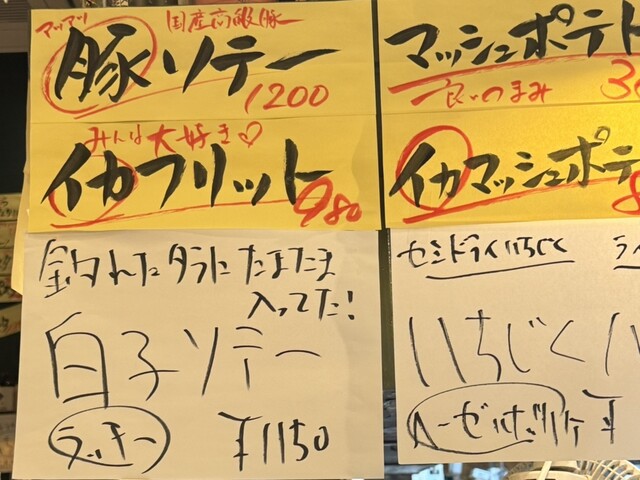 アツアツ 国産高級豚
豚ソテー
1200
みんな大好き♡
イカフリット
980
釣れたタラにたまたま
入ってた!
白子ソテー
ラッキー ¥1150
マッシュポテト
良いつまみ
イカマッシュポテ
セミドライいちじく
いちじく
ヘーゼルナッツ ¥